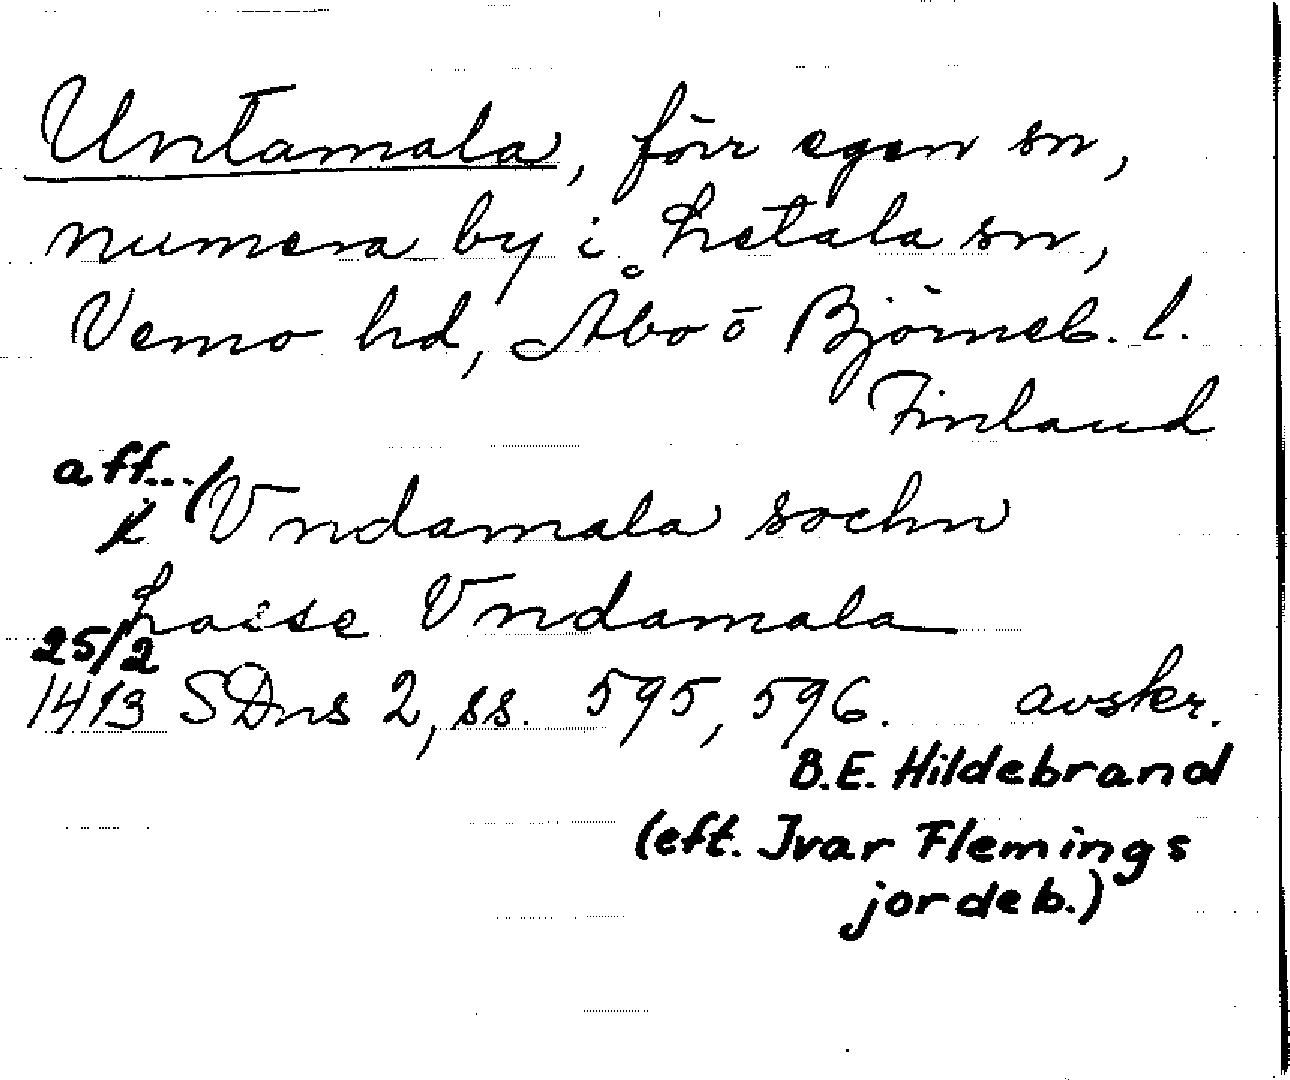 Untamala, förr egen sn,
numera by i Letala sn,
Vemo hd, Åbo o Björneb. l.
Finland
aff...
(Vndamala sochn
Lasse Vndamala
25/2
1413 SDns 2, ss. 595, 596. avskr.
B.E. Hildebrand
(eft. Ivar Flemings
jordeb.)